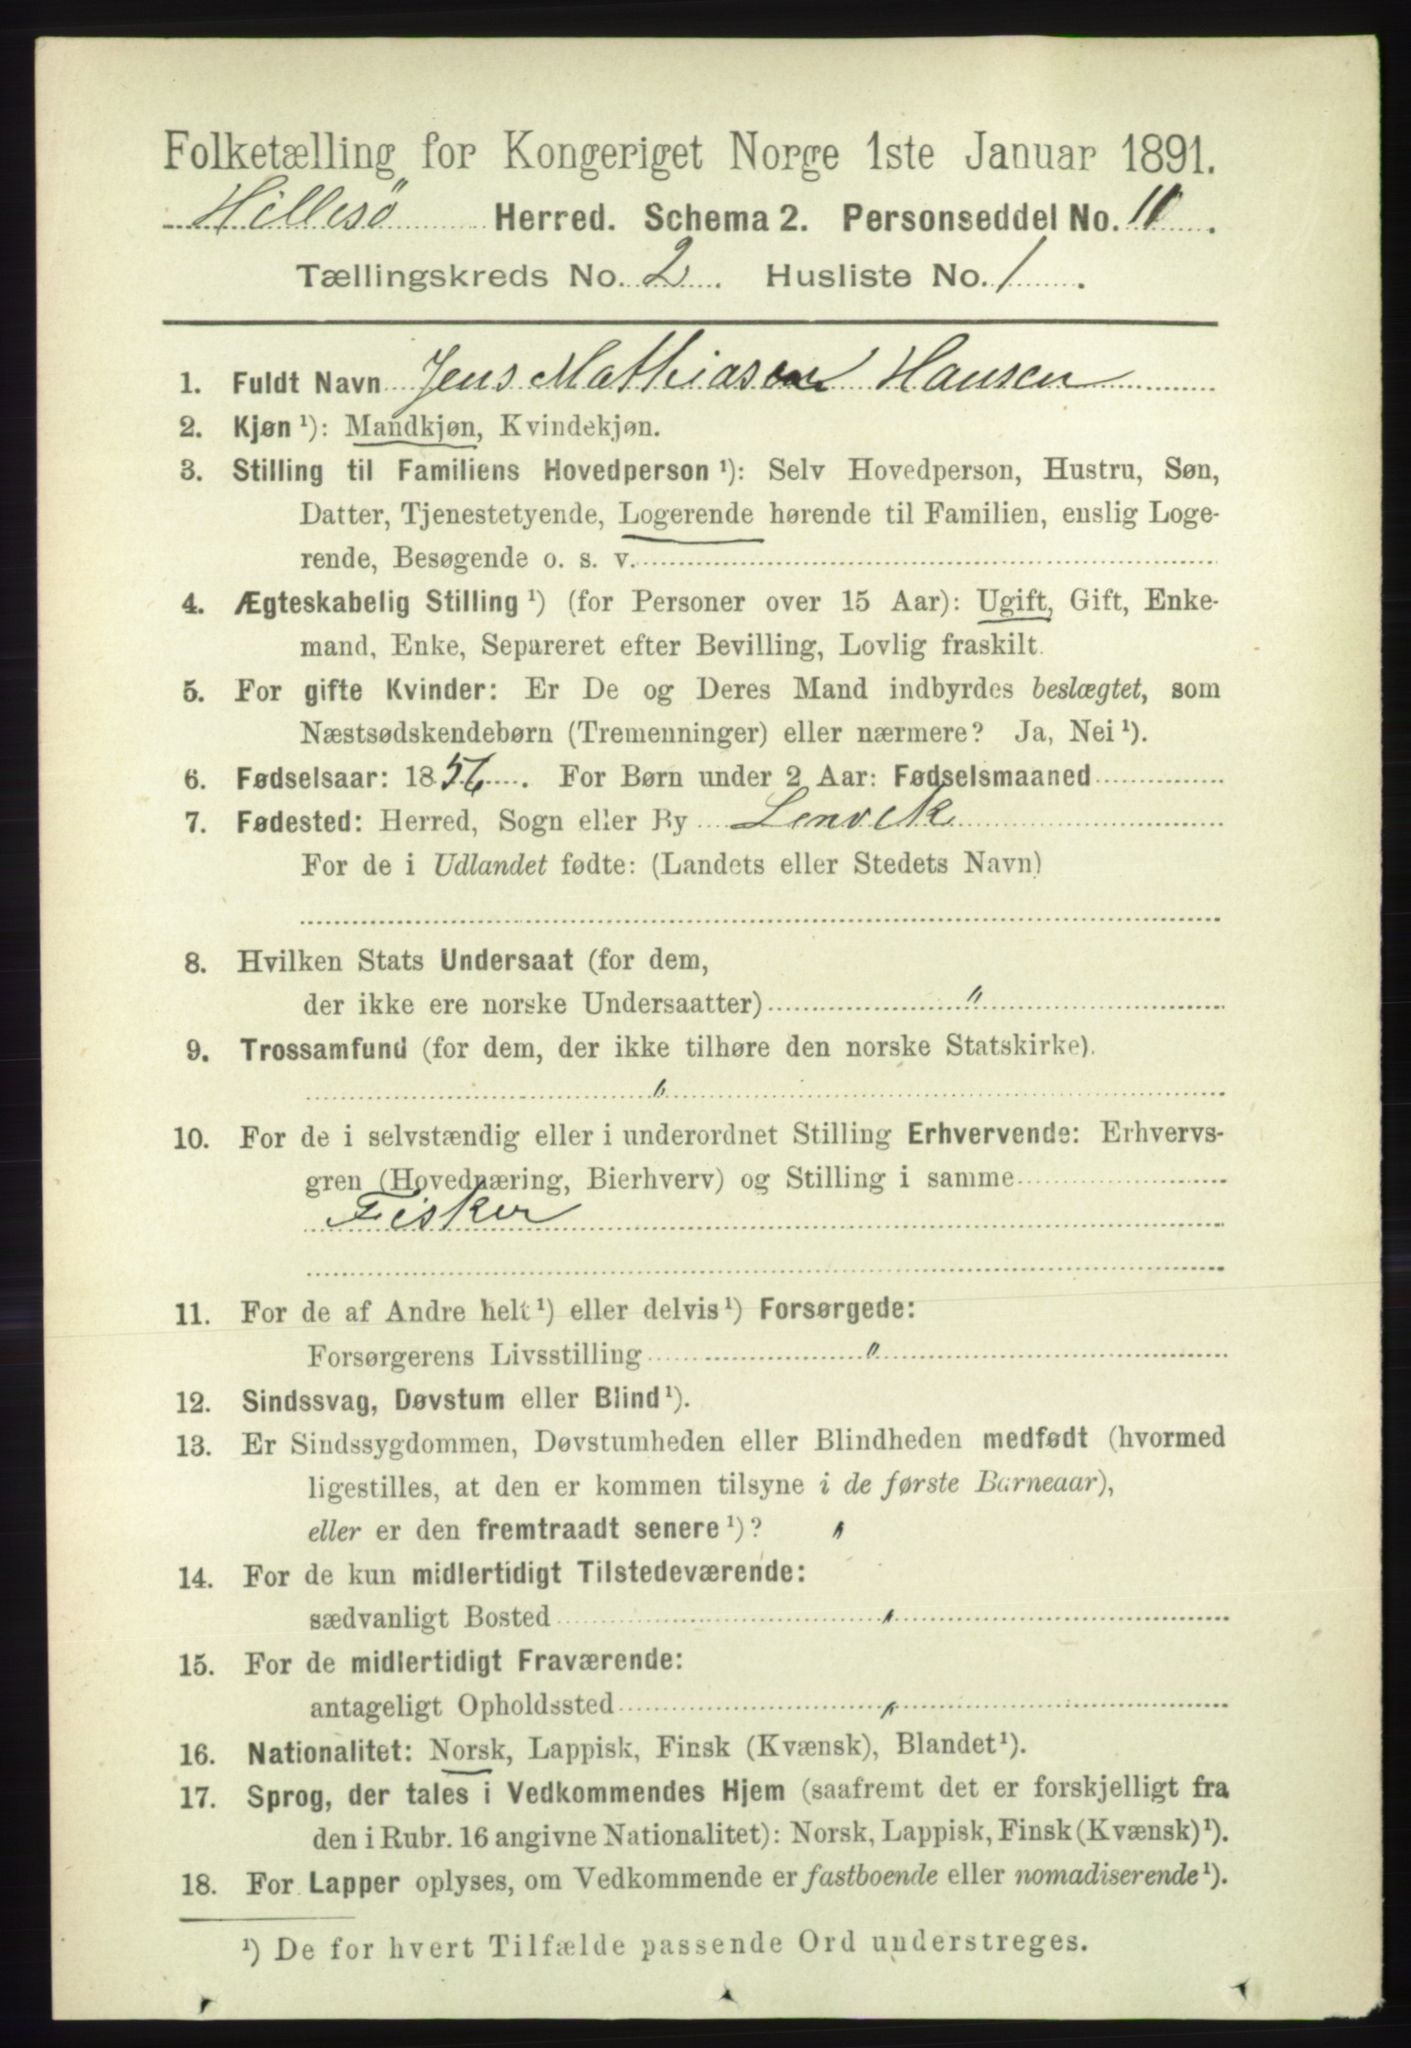 Folketælling for Kongeriget Norge 1ste Januar 1891.
Hillesö Herred. Schema 2. Personseddel No. 11.
Tællingskreds No. 2. Husliste No. 1.
1. Fuldt Navn Jens Mathiasen Hansen
2. Kjøn ¹): Mandkjøn, Kvindekjøn.
3. Stilling til Familiens Hovedperson ¹): Selv Hovedperson, Hustru, Søn,
Datter, Tjenestetyende, Logerende hørende til Familien, enslig Loge-
rende, Besøgende o. s. v.
4. Ægteskabelig Stilling ¹) (for Personer over 15 Aar): Ugift, Gift, Enke-
mand, Enke, Separeret efter Bevilling, Lovlig fraskilt.
5. For gifte Kvinder: Er De og Deres Mand indbyrdes beslægtet, som
Næstsødskendebørn (Tremenninger) eller nærmere? Ja, Nei ¹).
6. Fødselsaar: 1856. For Børn under 2 Aar: Fødselsmaaned
7. Fødested: Herred, Sogn eller By Lenvik
For de i Udlandet fødte: (Landets eller Stedets Navn)
8. Hvilken Stats Undersaat (for dem,
der ikke ere norske Undersaatter) "
9. Trossamfund (for dem, der ikke tilhøre den norske Statskirke).
"
10. For de i selvstændig eller i underordnet Stilling Erhvervende: Erhvervs-
gren (Hovednæring, Bierhverv) og Stilling i samme
Fisker
11. For de af Andre helt ¹) eller delvis ¹) Forsørgede:
Forsørgerens Livsstilling "
12. Sindssvag, Døvstum eller Blind ¹).
13. Er Sindssygdommen, Døvstumheden eller Blindheden medfødt (hvormed
ligestilles, at den er kommen tilsyne i de første Barneaar),
eller er den fremtraadt senere ¹)? "
14. For de kun midlertidigt Tilstedeværende:
sædvanligt Bosted "
15. For de midlertidigt Fraværende:
antageligt Opholdssted "
16. Nationalitet: Norsk, Lappisk, Finsk (Kvænsk), Blandet ¹).
17. Sprog, der tales i Vedkommendes Hjem (saafremt det er forskjelligt fra
den i Rubr. 16 angivne Nationalitet): Norsk, Lappisk, Finsk (Kvænsk) ¹).
18. For Lapper oplyses, om Vedkommende er fastboende eller nomadiserende ¹).
¹) De for hvert Tilfælde passende Ord understreges.